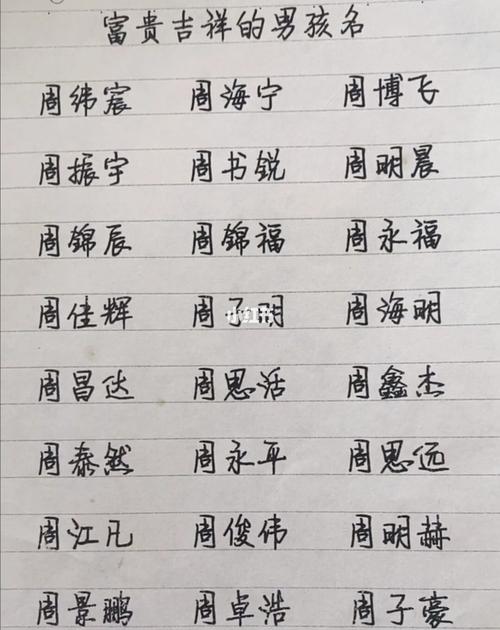 富贵吉祥的男孩名
周纬宸 周海宁 周博飞
周振宇 周书锐 周明晨
周锦辰 周锦福 周永福
周佳辉 周子明 周海明
小红书
周昌达 周思活 周鑫杰
周泰然 周永平 周思远
周江凡 周俊伟 周明赫
周景鹏 周卓浩 周子豪